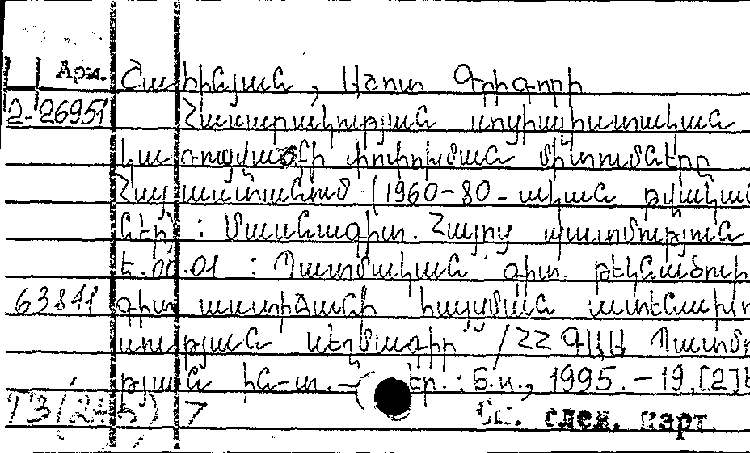 Арм. Շահինյան, Աշոտ Գրիգորի
2-26951 Հասարակության սոցիալիստական
կառուցվածքի փոփոխման միտումները
Հայաստանում (1960-80-ական թվական
ներ) : Մասնագիտ. Հայոց պատմություն
Է.00.01 : Պատմական գիտ. թեկնածուի
63841 գիտ աստիճանի հայցման ատենախո
սության սեղմագիր / ՀՀ ԳԱԱ Պատմ
թյան ին-տ. – Եր. : Б.и., 1995. – 19, [2] է
См. след. карт.